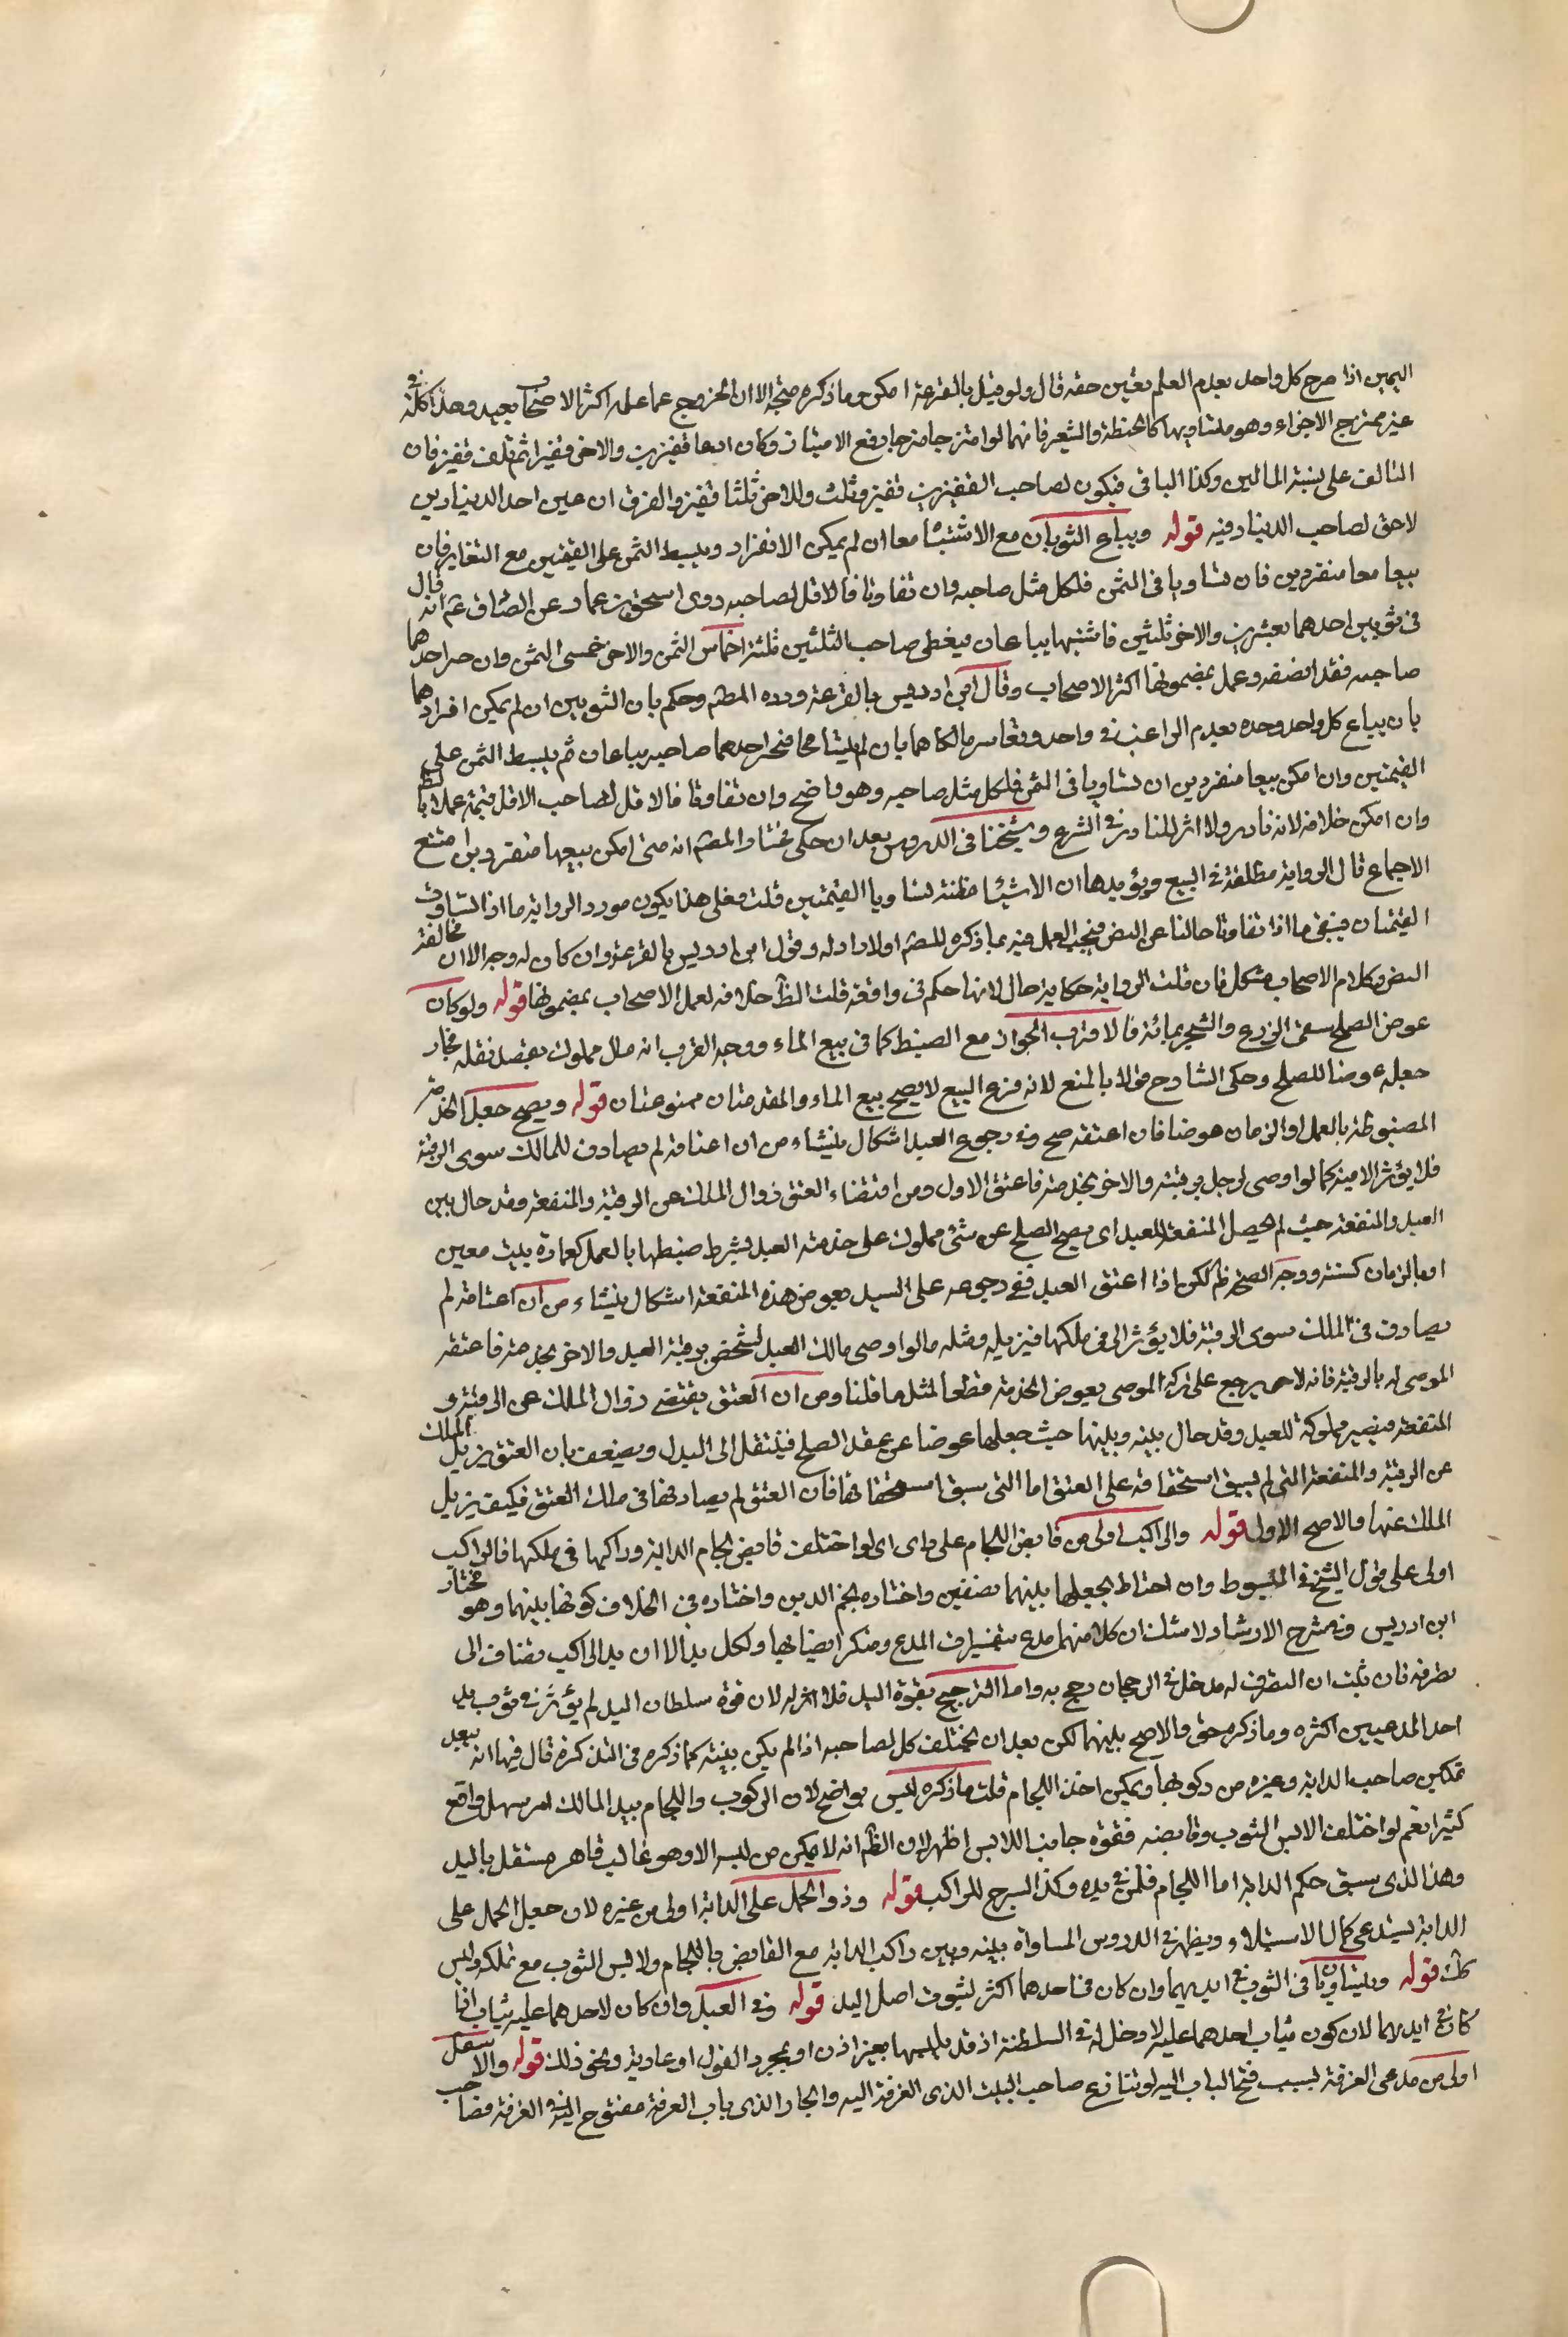 اليمين اذا صرح كل واحد بعدم العلم بعين حقه قال ولو قيل بالقرعة امكن وما ذكره متجه الا ان الخروج عما عليه اكثر الاصحاب بعيد وهذا كله في
غير ممتزج الاجزاء وهو متساويها كالحنطة والشعير فانهما لو امتزجا مزجا يرفع الامتياز وكان احدهما قفيزين والاخر قفيزا ثم تلف قفيز فان
التالف على نسبة المالين وكذا الباقي فيكون لصاحب القفيزين قفيز وثلث وللاخر ثلثا قفيز والفرق ان عين احد الدينارين
لاحق لصاحب الدينار فيه قوله ويباع الثوبان مع الاشتباه معا ان لم يمكن الانفراد ويبسط الثمن على القيمتين مع التغاير فان
بيعا معا منفردين فان تساويا في الثمن فلكل مثل صاحبه وان تفاوتا فالاقل لصاحبه روى اسحق بن عمار عن الصادق عم انه قال
في ثوبين احدهما بعشرين والاخر ثلثين فاشتبها يباعان فيعطى صاحب الثلثين ثلثة اخماس الثمن والاخر خمسي الثمن وان خير احدهما
صاحبه فقد انصفه وعمل بمضمونها اكثر الاصحاب وقال ابن ادريس بالقرعة ورده المصنف وحكم بان الثوبين ان لم يمكن افرادهما
بان يباع كل واحد وحده بعدم الراغب في واحد وتعاسر مالكاهما بان لم يتسامحا فنجز احدهما صاحبه يباعان ثم يبسط الثمن على
القيمتين وان امكن بيعا منفردين ان تساويا في الثمن فلكل مثل صاحبه وهو واضح وان تفاوتا فالاقل لصاحب الاقل قيمة عملا بالظاهر
وان امكن خلافه لانه نادر ولا اثر للنادر في الشرع وشيخنا في الدروس بعد ان حكى مختار المصنف انه متى امكن بيعهما منفردين امتنع
الاجماع قال الرواية مطلقة في البيع ويؤيدها ان الاشتباه مظنة تساويا القيمتين قلت فعلى هذا يكون مورد الرواية ما اذا تساوت
القيمتان فيبقى ما اذا تفاوتا خاليا عن النص فيجب العمل فيه بما ذكره المصنف اولا لادلته وقول ابن ادريس بالقرعة وان كان له وجه الا ان مخالفة
النص وكلام الاصحاب مشكل فان قلت الرواية حكاية حال لانها حكم في واقعة قلت الظاهر خلافه لعمل الاصحاب بمضمونها قوله ولو كان
عوض الصلح سقي الزرع والشجر بمائه فالاقرب الجواز مع الضبط كما في بيع الماء ووجه القرب انه مال مملوك يقصد نقله فجاز
جعله عوضا للصلح وحكى الشارح قولا بالمنع لانه فرع البيع لا يصح بيع الماء والمقدمتان ممنوعتان قوله ويصح جعل الخدمة
المضبوطة بالعمل او الزمان عوضا فان اعتقه صح وفي رجوع العبد اشكال ينشاء من ان اعتاقه لم يصادف للمالك سوى الرقبة
فلا يؤثر الا فيه كما لو اوصى لرجل برقبته والاخر بخدمته فاعتق الاول ومن اقتضاء العتق زوال الملك عن الرقبة والمنفعة وقد حال بين
العبد والمنفعة حيث لم يحصل المنفعة للعبد اى يصح الصلح عن شئ مملوك على خدمة العبد بشرط ضبطها بالعمل كعمارة بيت معين
او بالزمان كسنة ووجه الصحة ظاهر لكن اذا اعتق العبد ففي رجوعه على السيد بعوض هذه المنفعة اشكال ينشاء من ان اعتاقه لم
يصادف في الملك سوى الرقبة فلا يؤثر الى في ملكها فيزيله ومثله ما لو اوصى مالك العبد لشخص برقبة العبد والاخر بخدمته فاعتقه
الموصى له بالرقبة فانه لا يرجع على تركة الموصى بعوض الخدمة قطعا لمثل ما قلنا ومن ان العتق يقتضي زوال الملك عن الرقبة و
المنفعة فيصير مملوكة للعبد وقد حال بينه وبينها حيث جعلها عوضا عن عقد الصلح فينتقل الى البدل ويضعف بان العتق يزيل الملك
عن الرقبة والمنفعة التي لم يسبق استحقاقه على العتق اما التي سبق استحقاقها فان العتق لم يصادفها في ملك العتق فكيف يزيل
الملك عنها والاصح الاول قوله والراكب اولى من قابض اللجام على راى اى لو اختلف قابض لجام الدابة وراكبها في ملكها فالراكب
اولى على قول الشيخ في المبسوط وان احتاط بجعلها بينهما نصفين واختاره نجم الدين واختاره في الخلاف كونها بينهما وهو مختار
ابن ادريس وفي شرح الارشاد لا شك ان كلا منهما مدع بتفسيرات المدعي ومنكر ايضا فيها ولكل يد الا ان يد الراكب تضاف الى
تصرفه فان ثبت ان التصرف له مدخل في الرجحان رجح به واما الترجيح بقوة اليد فلا اثر له لان قوة سلطان اليد لم يؤثر في ثوب بيد
احد المدعيين اكثره وما ذكره حق والاصح بينهما لكن بعد ان يختلف كل لصاحبه اذا لم يكن بينة كما ذكره في التذكرة قال فيها انه يبعد
تمكين صاحب الدابة وغيره من ركوبها ويمكن اخذ اللجام قلت ما ذكره ليس بواضح لان الركوب واللجام بيد المالك امر سهل واقع
كثيرا نعم لو اختلف الابس الثوب وقابضه فقوة جانب اللابس اظهر لان الظاهر انه لا يمكن من لبسه الا وهو غالب قاهر مستقل باليد
وهذا الذي يسبق حكم الدابة اما اللجام فلمن في يده وكذا السرج للراكب قوله وذو الحمل على الدابة اولى من غيره لان جعل الحمل على
الدابة يستدعي كمال الاستيلاء ويظهر في الدروس المساواة بينه وبين راكب الدابة مع القابض باللجام ولابس الثوب مع تملكه وليس
كك قوله ويتساويان في الثوب في ايديهما وان كان في احدهما اكثر لثبوت اصل اليد قوله وفي العبد وان كان لاحدهما عليه ثياب اذا
كان في ايديهما لان كون ثياب احدهما عليه لا دخل له في السلطنة اذ قد يلبسها بغير اذن او بمجرد القول او عارية ونحو ذلك قوله والاسفل
اولى من مدعي الغرفة بسبب فتح الباب اليه لو تنازع صاحب البيت الذي الغرفة اليه والجار الذي باب الغرفة مفتوح اليه في الغرفة فصاحب